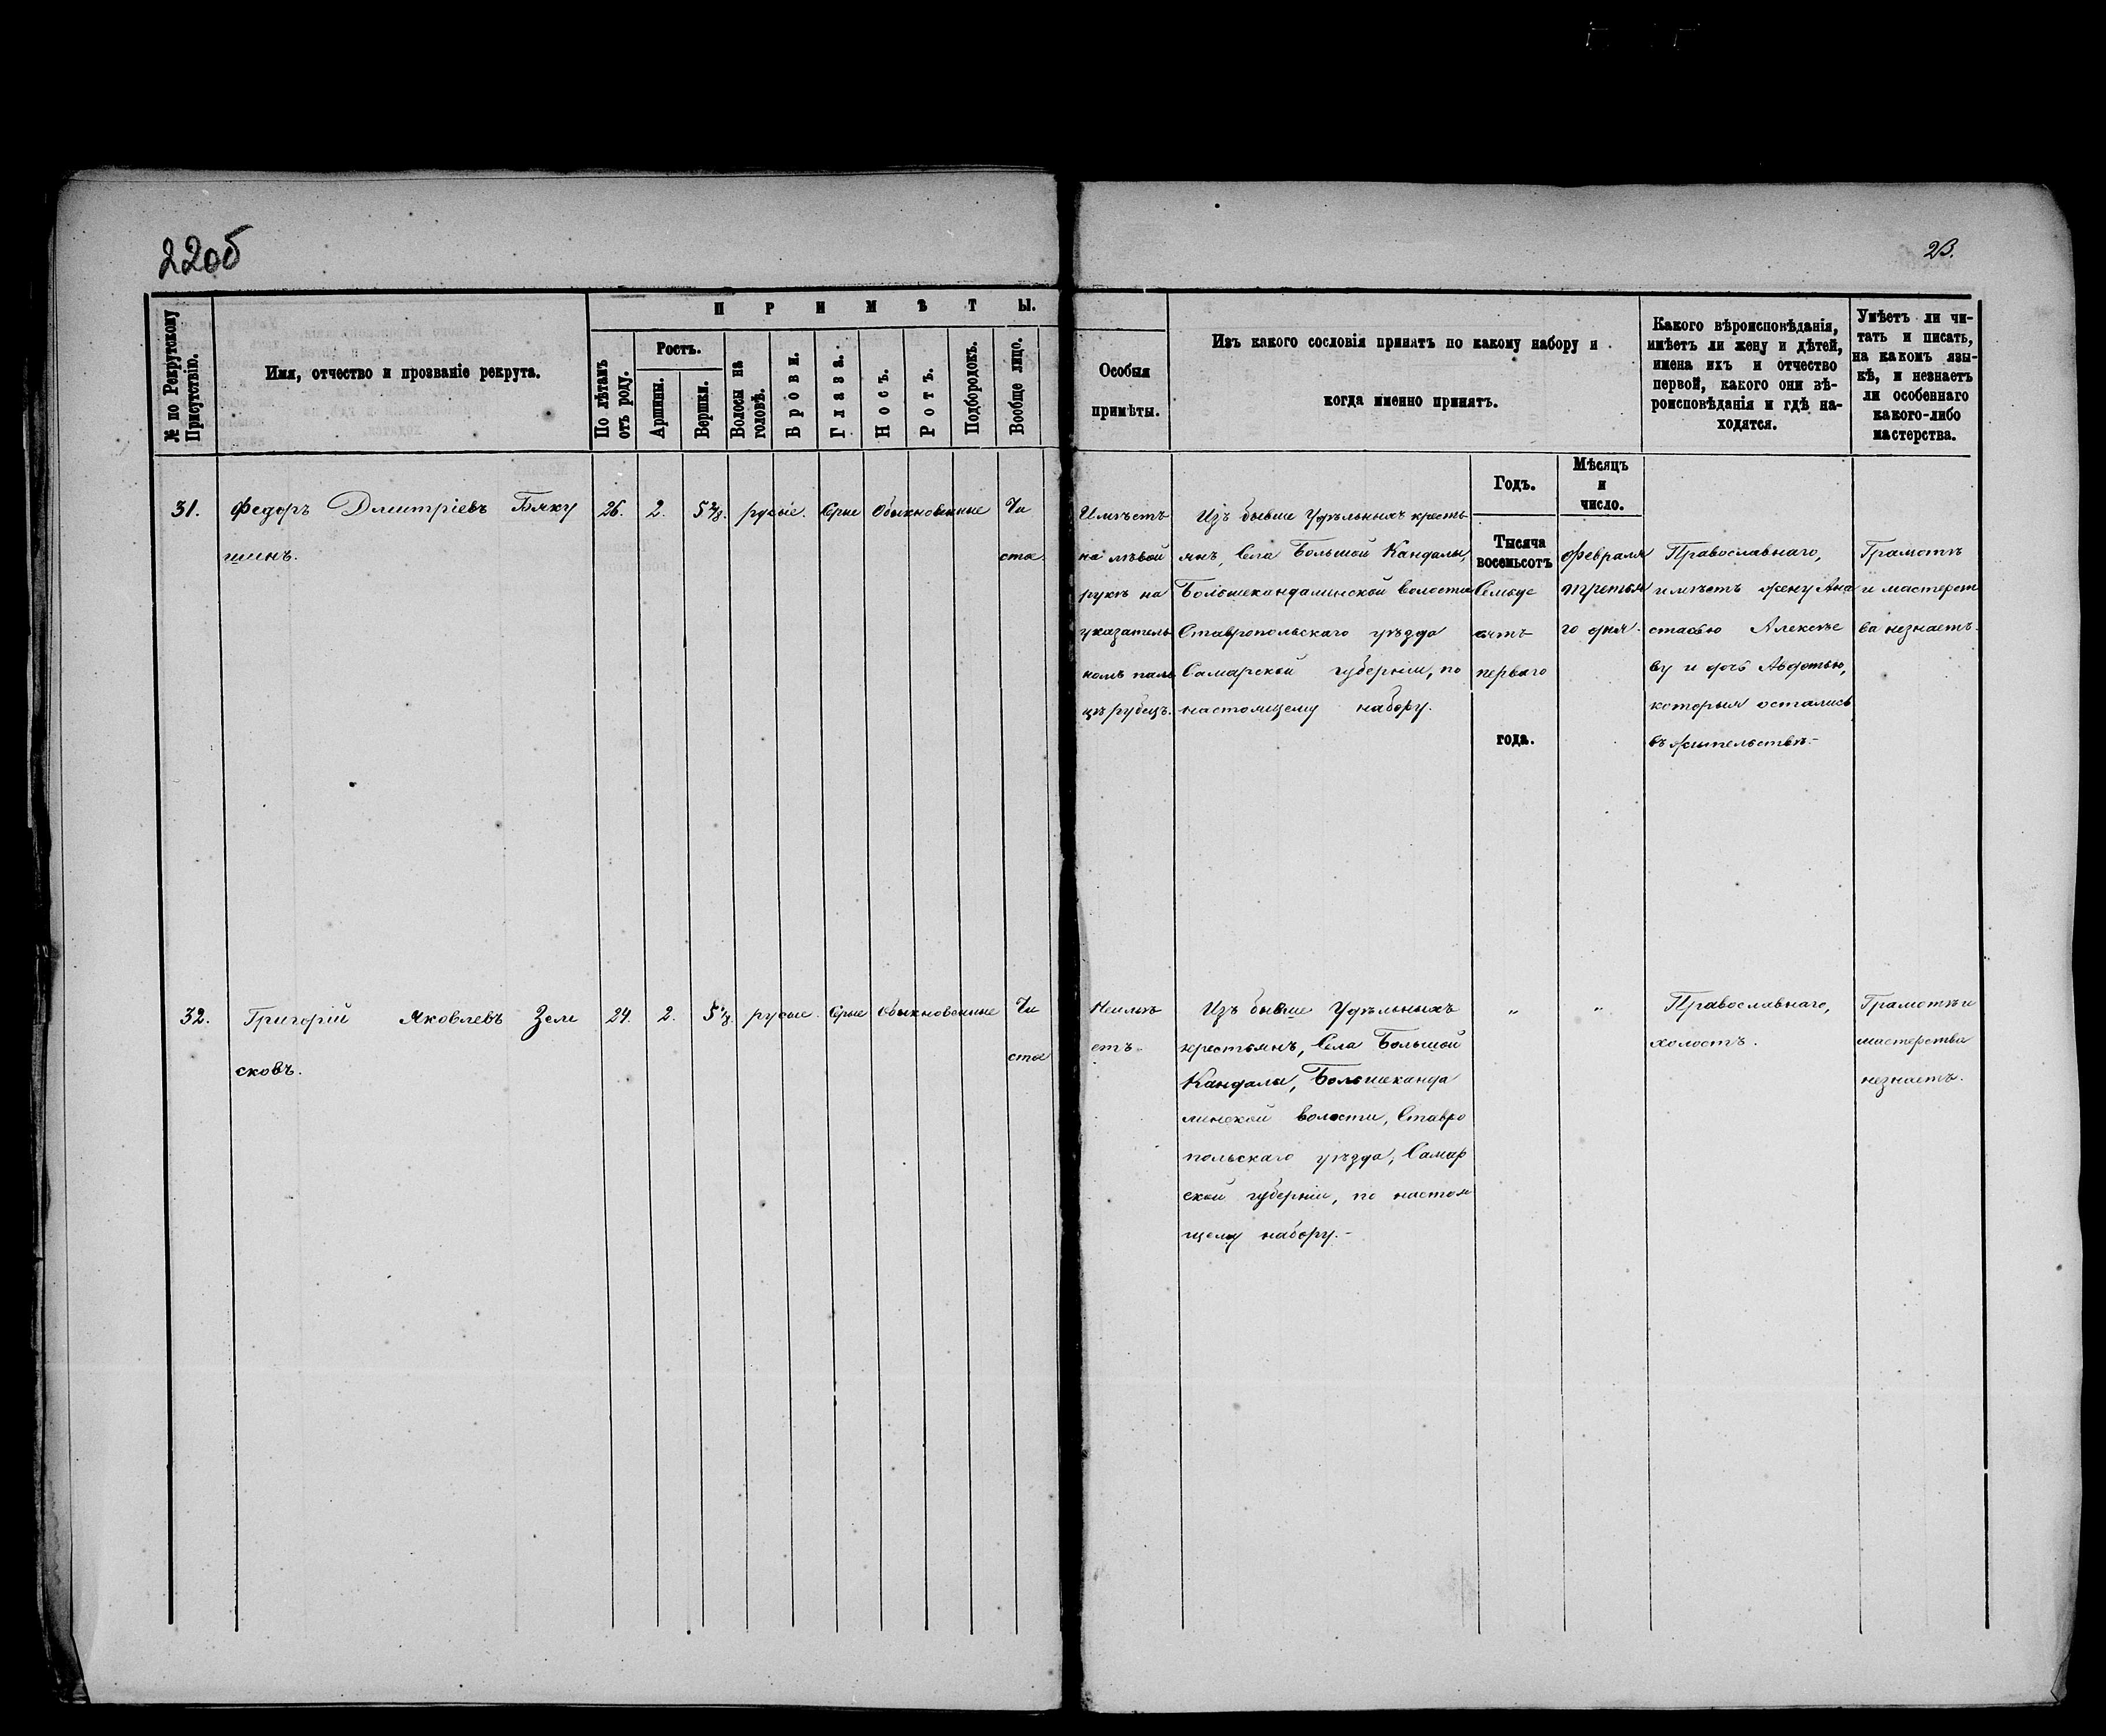 22об
23.
№ по Рекрутскому Присутствію.
Имя, отчество и прозваніе рекрута.
ПРИМѢТЫ.
По лѣтамъ отъ роду.
Ростъ.
Аршины.
Вершки.
Волосы на головѣ.
Брови.
Глаза.
Носъ.
Ротъ.
Подбородекъ.
Вообще лицо.
Особыя
примѣты.
Изъ какого сословія принятъ по какому набору и
когда именно принятъ.
Какого вѣроисповѣданія,
имѣетъ ли жену и дѣтей,
имена ихъ и отчество
первой, какого они вѣ-
роисповѣданія и гдѣ на-
ходятся.
Умѣетъ ли чи-
тать и писать,
на какомъ язы-
кѣ, и незнаетъ
ли особеннаго
какого-либо
мастерства.
Годъ.
Мѣсяцъ
и
число.
31.
Федоръ Дмитріевъ Бяку
шинъ.
26.
2.
русые.
Сѣрые
Обыкновенные
Чи
сто.
Имѣетъ
на лѣвой
рукѣ на
указатель
номъ паль
цѣ рубецъ.
Изъ бывше Удѣльныхъ кресть
янъ, Села Большой Кандалы,
Большекандалинской волости
Ставропольскаго уѣзда
Самарской губерніи, по
настоящему набору.
Тысяча
восемьсотъ
Семьде
сятъ
перваго
года.
Февраля
третья
го дня.
Православнаго,
имѣетъ жену Ана
стасью Алексѣе
ву и дочь Авдотью,
которыя остались
въ жительствѣ.-
Грамотѣ
и мастерст
ва незнаетъ.
32.
Григорій Яковлевъ Зем
сковъ.
24.
2.
русые.
Сѣрые
Обыкновенные
Чи
сто
Неимѣ
етъ.
Изъ бывше Удѣльныхъ
крестьянъ, Села Большой
Кандалы, Большеканда
линской волости, Ставро
польскаго уѣзда, Самар
ской губерніи, по настоя
щему набору.-
"
"
Православнаго,
холостъ.
Грамотѣ и
мастерства
незнаетъ.